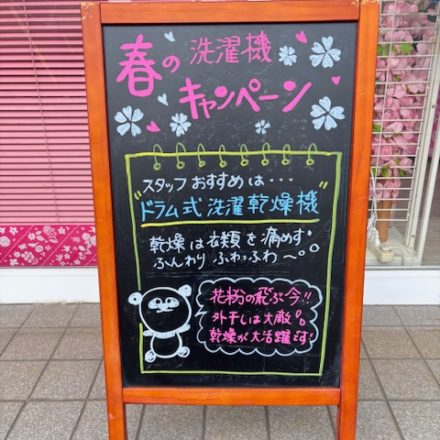 春の洗濯機
キャンペーン
スタッフおすすめは・・・
"ドラム式洗濯乾燥機"
乾燥は衣類を痛めず
ふんわりふわっふわ〜
花粉の飛ぶ今!!
外干しは大敵
乾燥が大活躍です